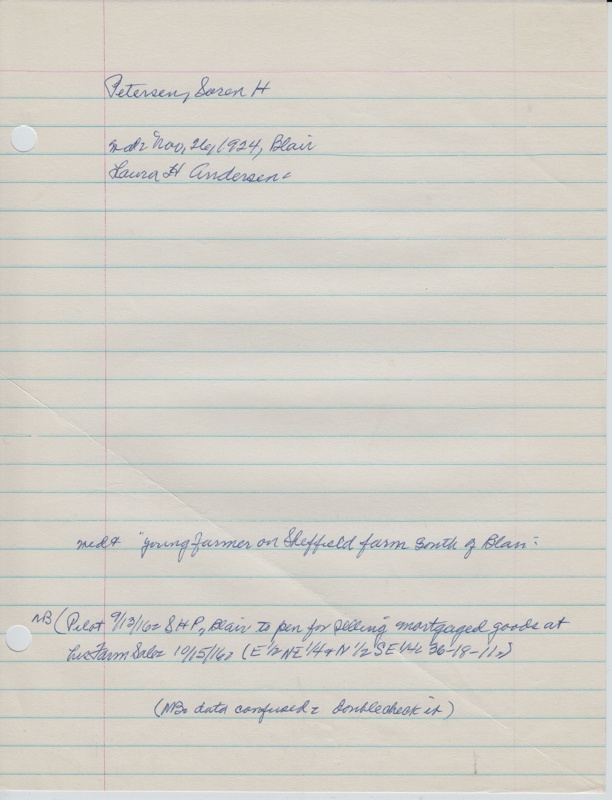 Petersen, Soren H
md: Nov, 26, 1924, Blair
Laura H Andersen-
"young farmer on Sheffield farm South of Blair-
NB (Pilot 9/13/16: S H P, Blair to pen for selling mortgaged goods at
his Farm Sale: 10/15/16: (E 1/2 NE 1/4 & N 1/2 SE 1/4: 36-18-11:)
(NB: data confused: doublecheck it)